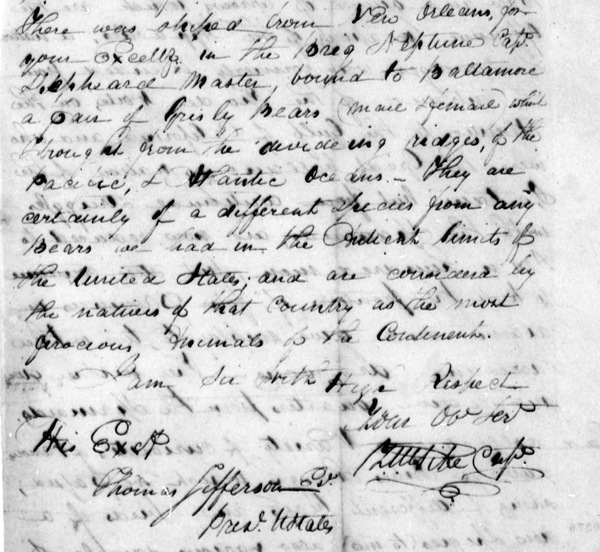 There was shiped from New Orleans, for
your Excelly. in the Brig Neptune Capt.
Shepheard Master, bound to Baltamore
a pair of Grisly Bears Male & female which
I brought from the divideing ridges, of the
Pacific, & Atlantic Oceans. — They are
certainly of a different species from any
Bears we had in the Antient limits of
the United States; and are considerd by
the natives of that Country as the most
ferocious Animals of the Continent.
I am Sir with High Respect
Your Ob. Sert.
ZMPike Capt.
His Excy.
Thomas Jefferson
Prest. UStates